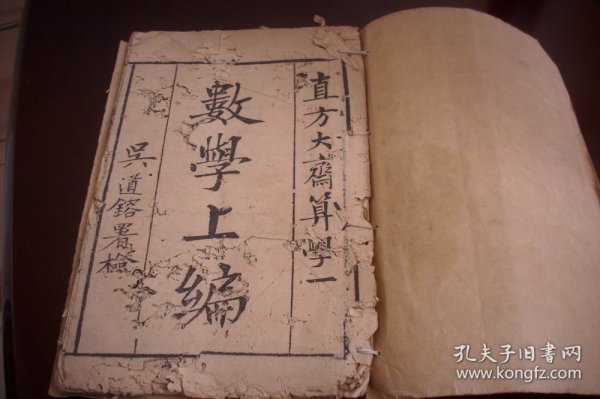 直方大齋算學一
數學上編
吳道鎔署檢
孔夫子旧书网
www.kongfz.com